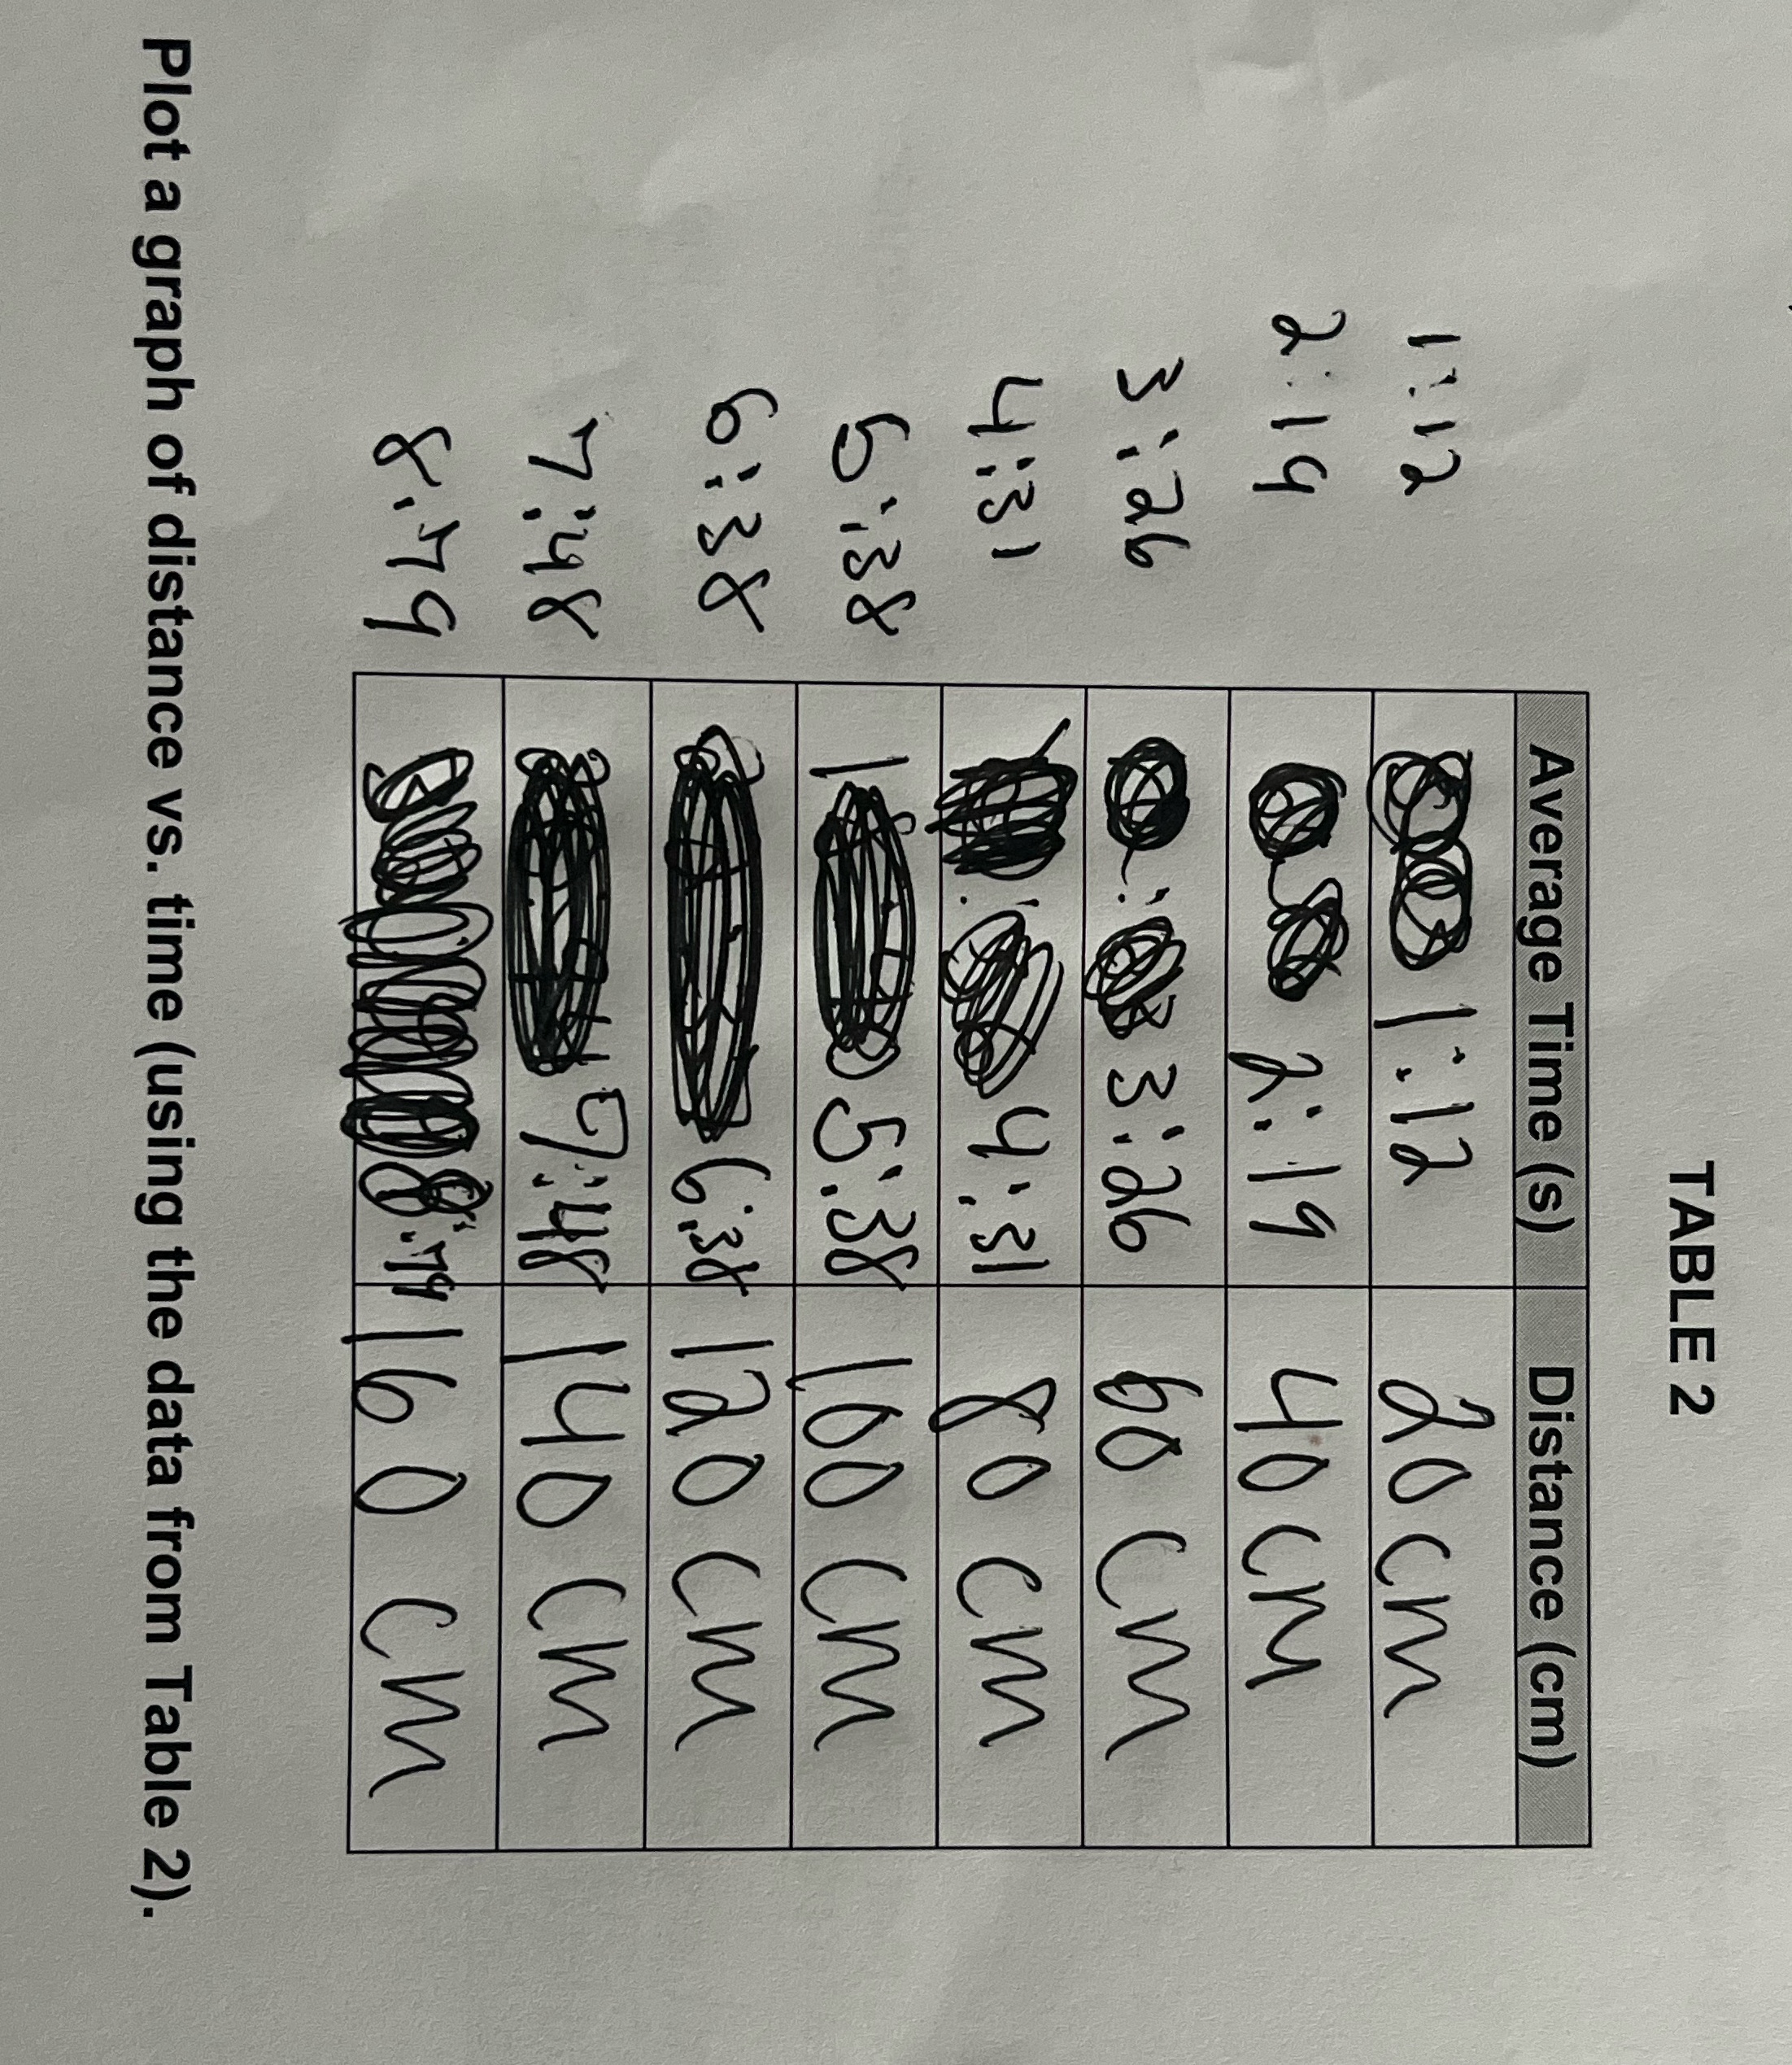 TABLE 2
Average Time (s) Distance (cm)
1:12 1:12 20 cm
2:19 2:19 40 cm
3:26 3:26 60 cm
4:31 4:31 80 cm
5:38 5:38 100 cm
6:38 6:38 120 cm
7:48 7:48 140 cm
8:79 8:79 160 cm
Plot a graph of distance vs. time (using the data from Table 2).